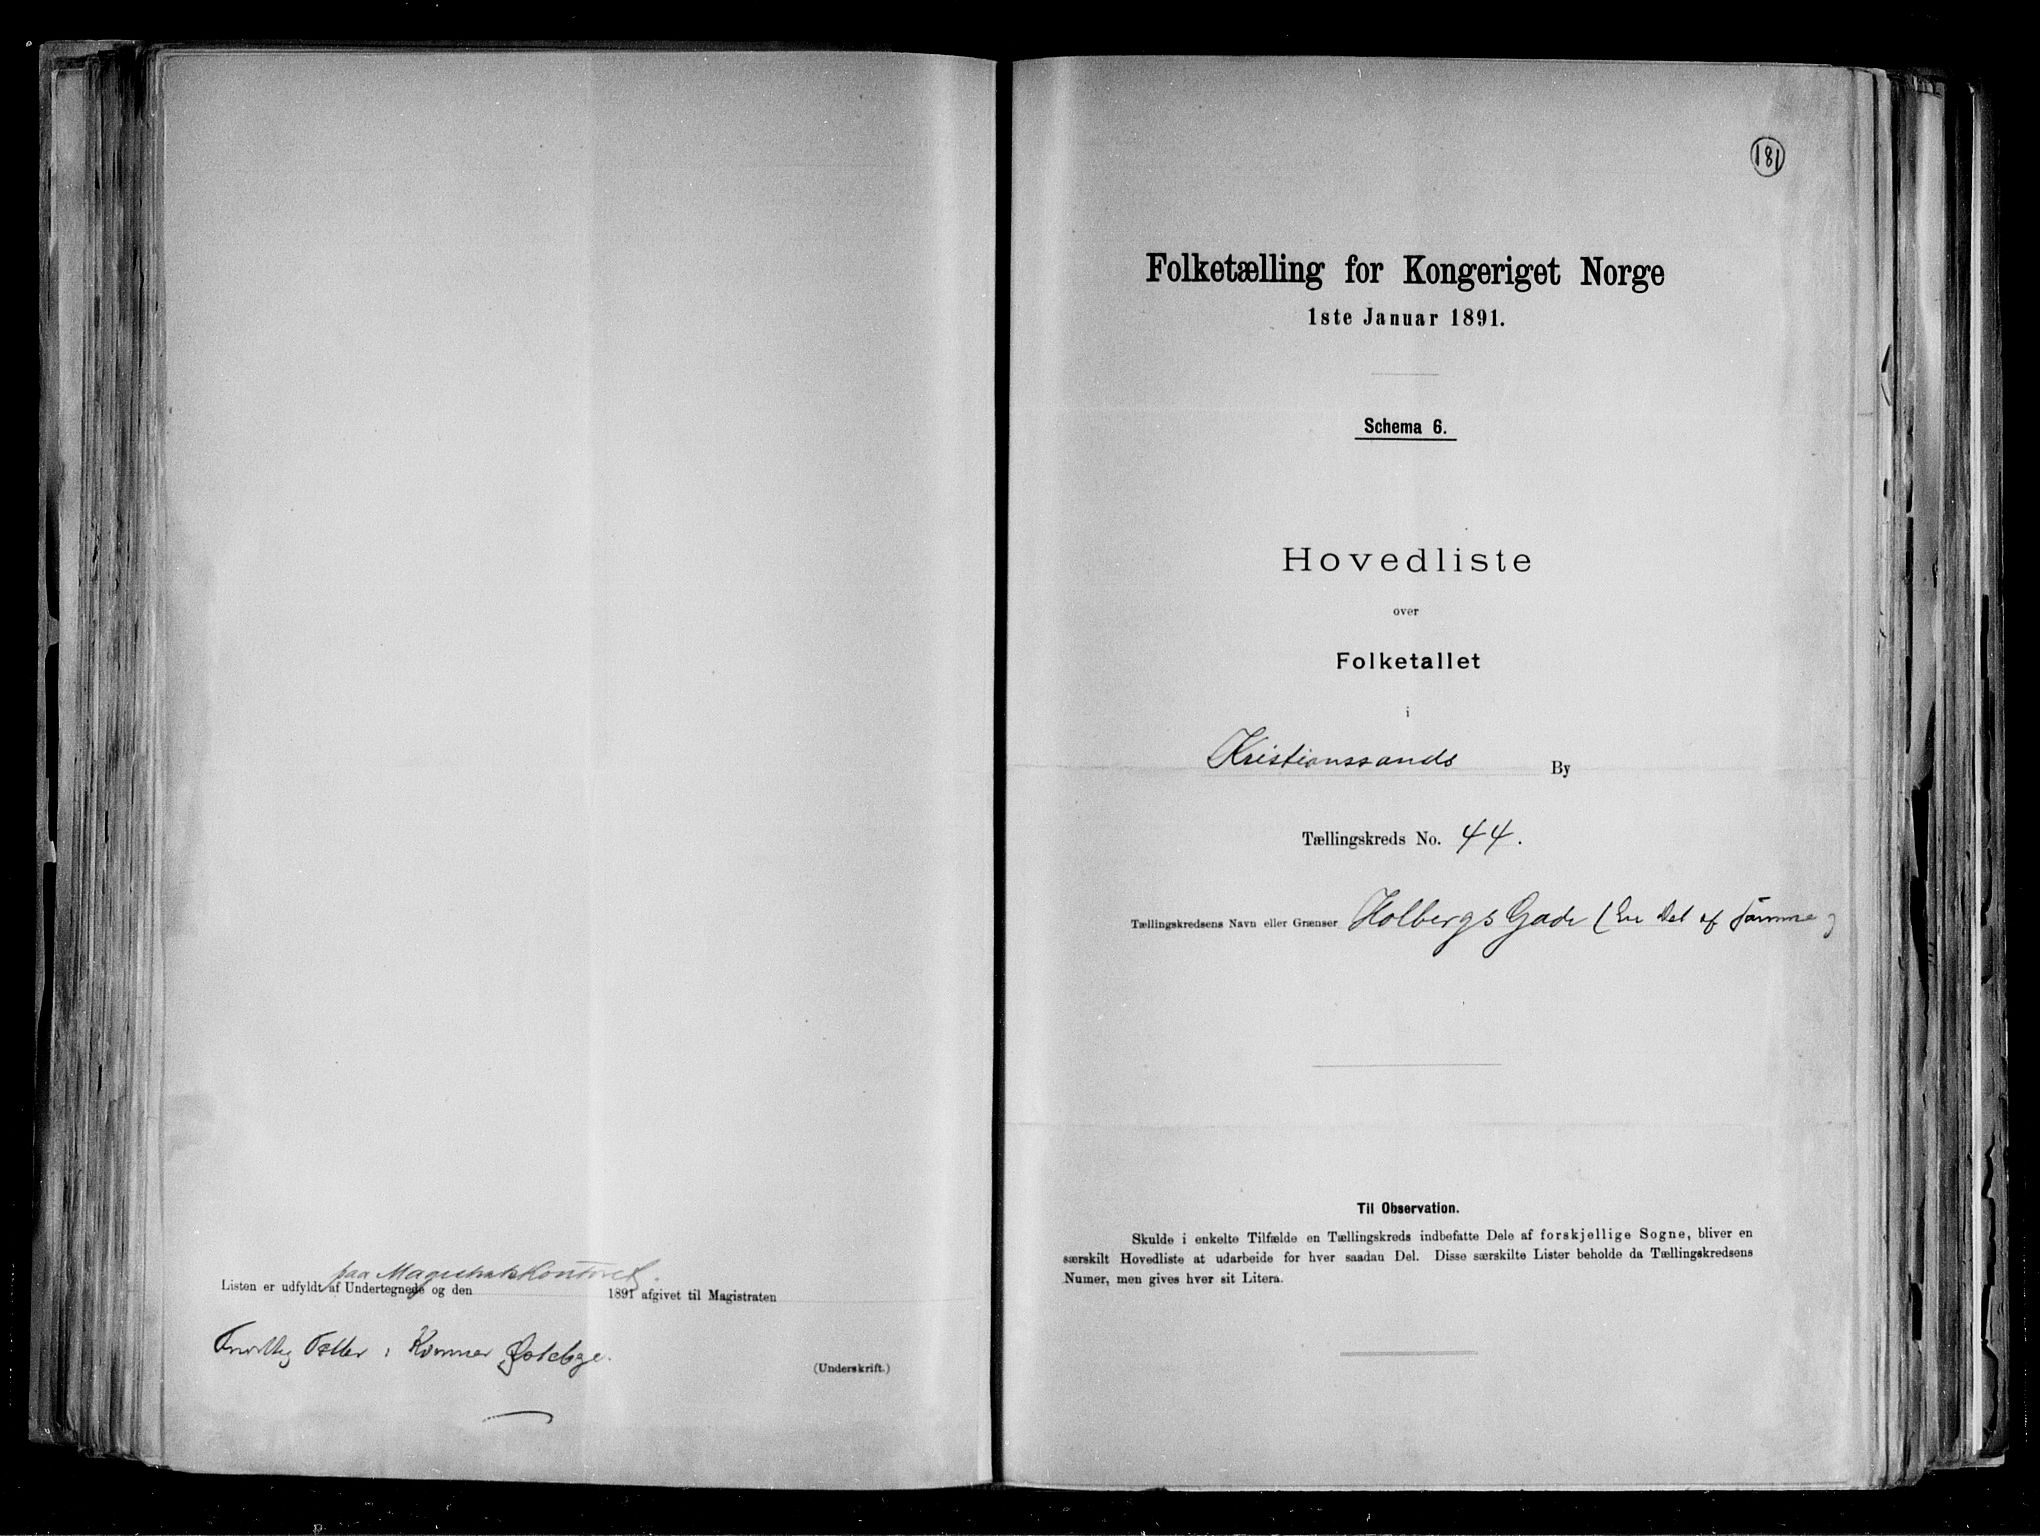 paa Magistratskontoret.
Listen er udfyldt af Undertegnede og den 1891 afgivet til Magistraten
(Underskrift.)
181
Folketælling for Kongeriget Norge
1ste Januar 1891.
Schema 6.
Hovedliste
over
Folketallet
i
Kristianssands By
Tællingskreds No. 44.
Tællingskredsens Navn eller Grænser Holbergs Gade (En Del af samme)
Til Observation.
Skulde i enkelte Tilfælde en Tællingskreds indbefatte Dele af forskjellige Sogne, bliver en
særskilt Hovedliste at udarbeide for hver saadan Del. Disse særskilte Lister beholde da Tællingskredsens
Numer, men gives hver sit Litera.